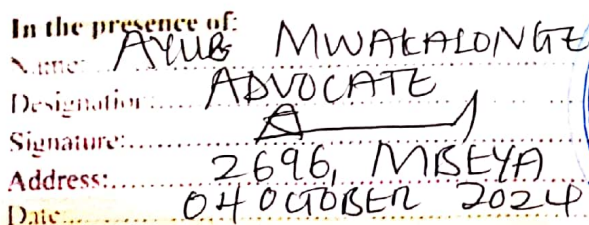 In the presence of:
Name: AYUB MWAKALONGE
Designation: ADVOCATE
Signature:
Address: 2696, MBEYA
Date: 04 OCTOBER 2024